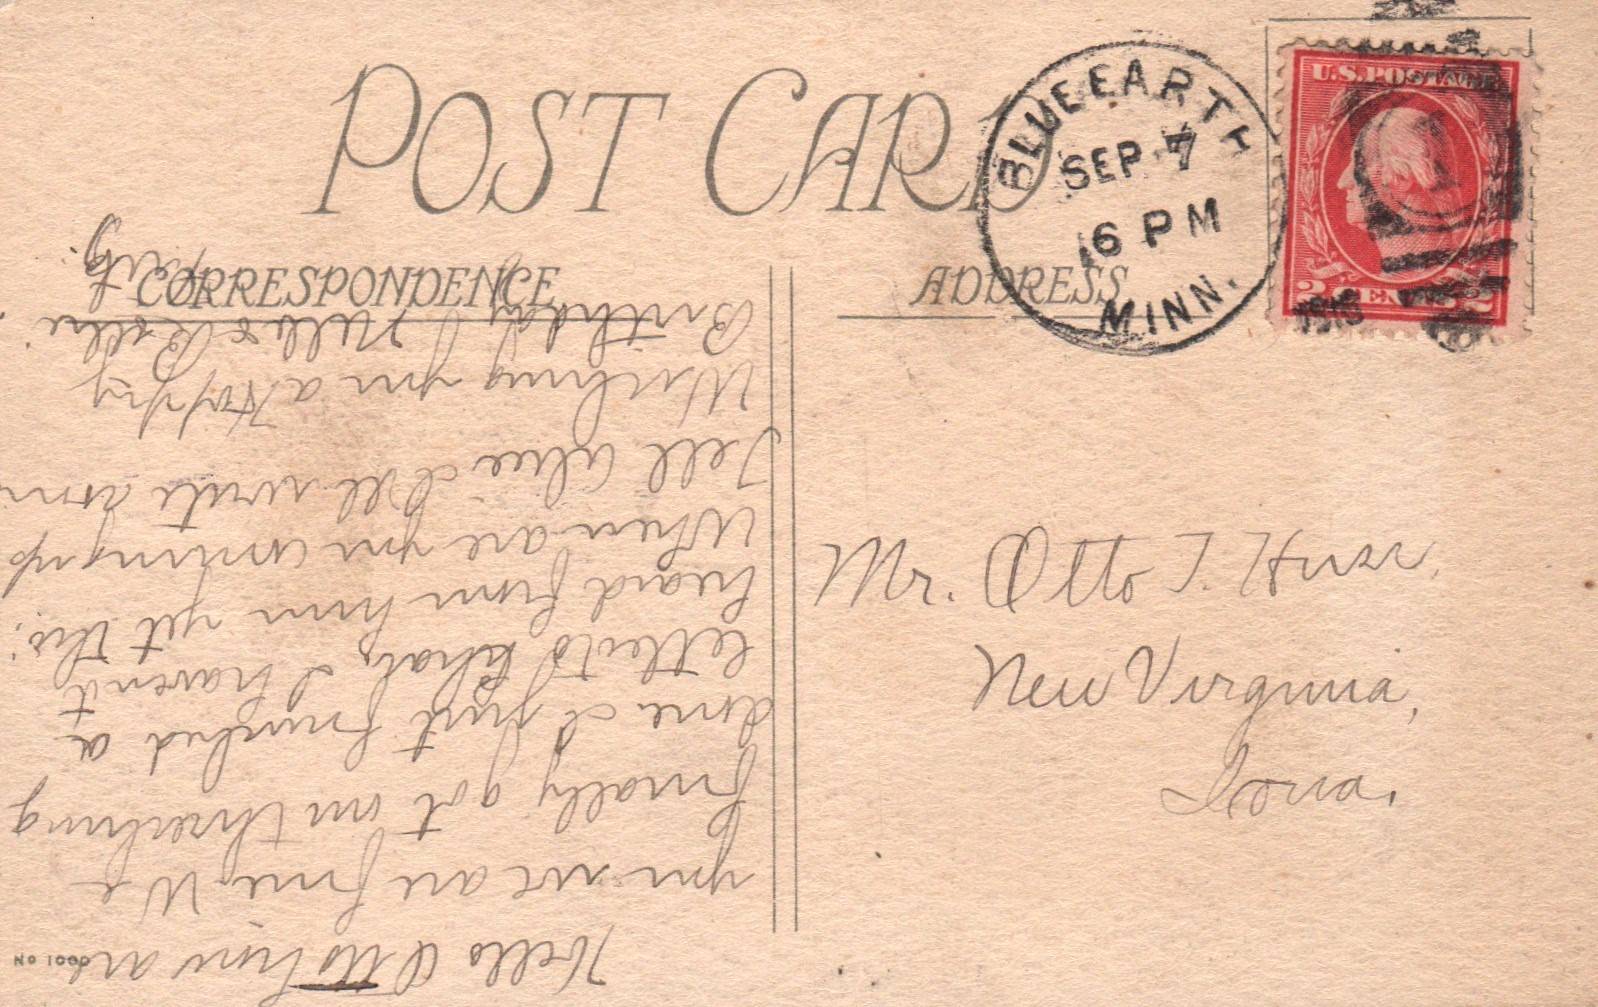 POST CARD
CORRESPONDENCE
ADDRESS
BLUE EARTH
SEP 7
6 PM
MINN.
1918
U.S. POSTAGE
2 CENTS 2
Mr. Otto T. Huss,
New Virginia,
Iowa.
Hello Otto how are
you we are fine. We
finally got our threshing
done. I just finished a
letter to I havent
heard from him yet this.
When are you coming up
Tell Alice I'll write soon
Wishing you a Happy
Birthday
No 1000